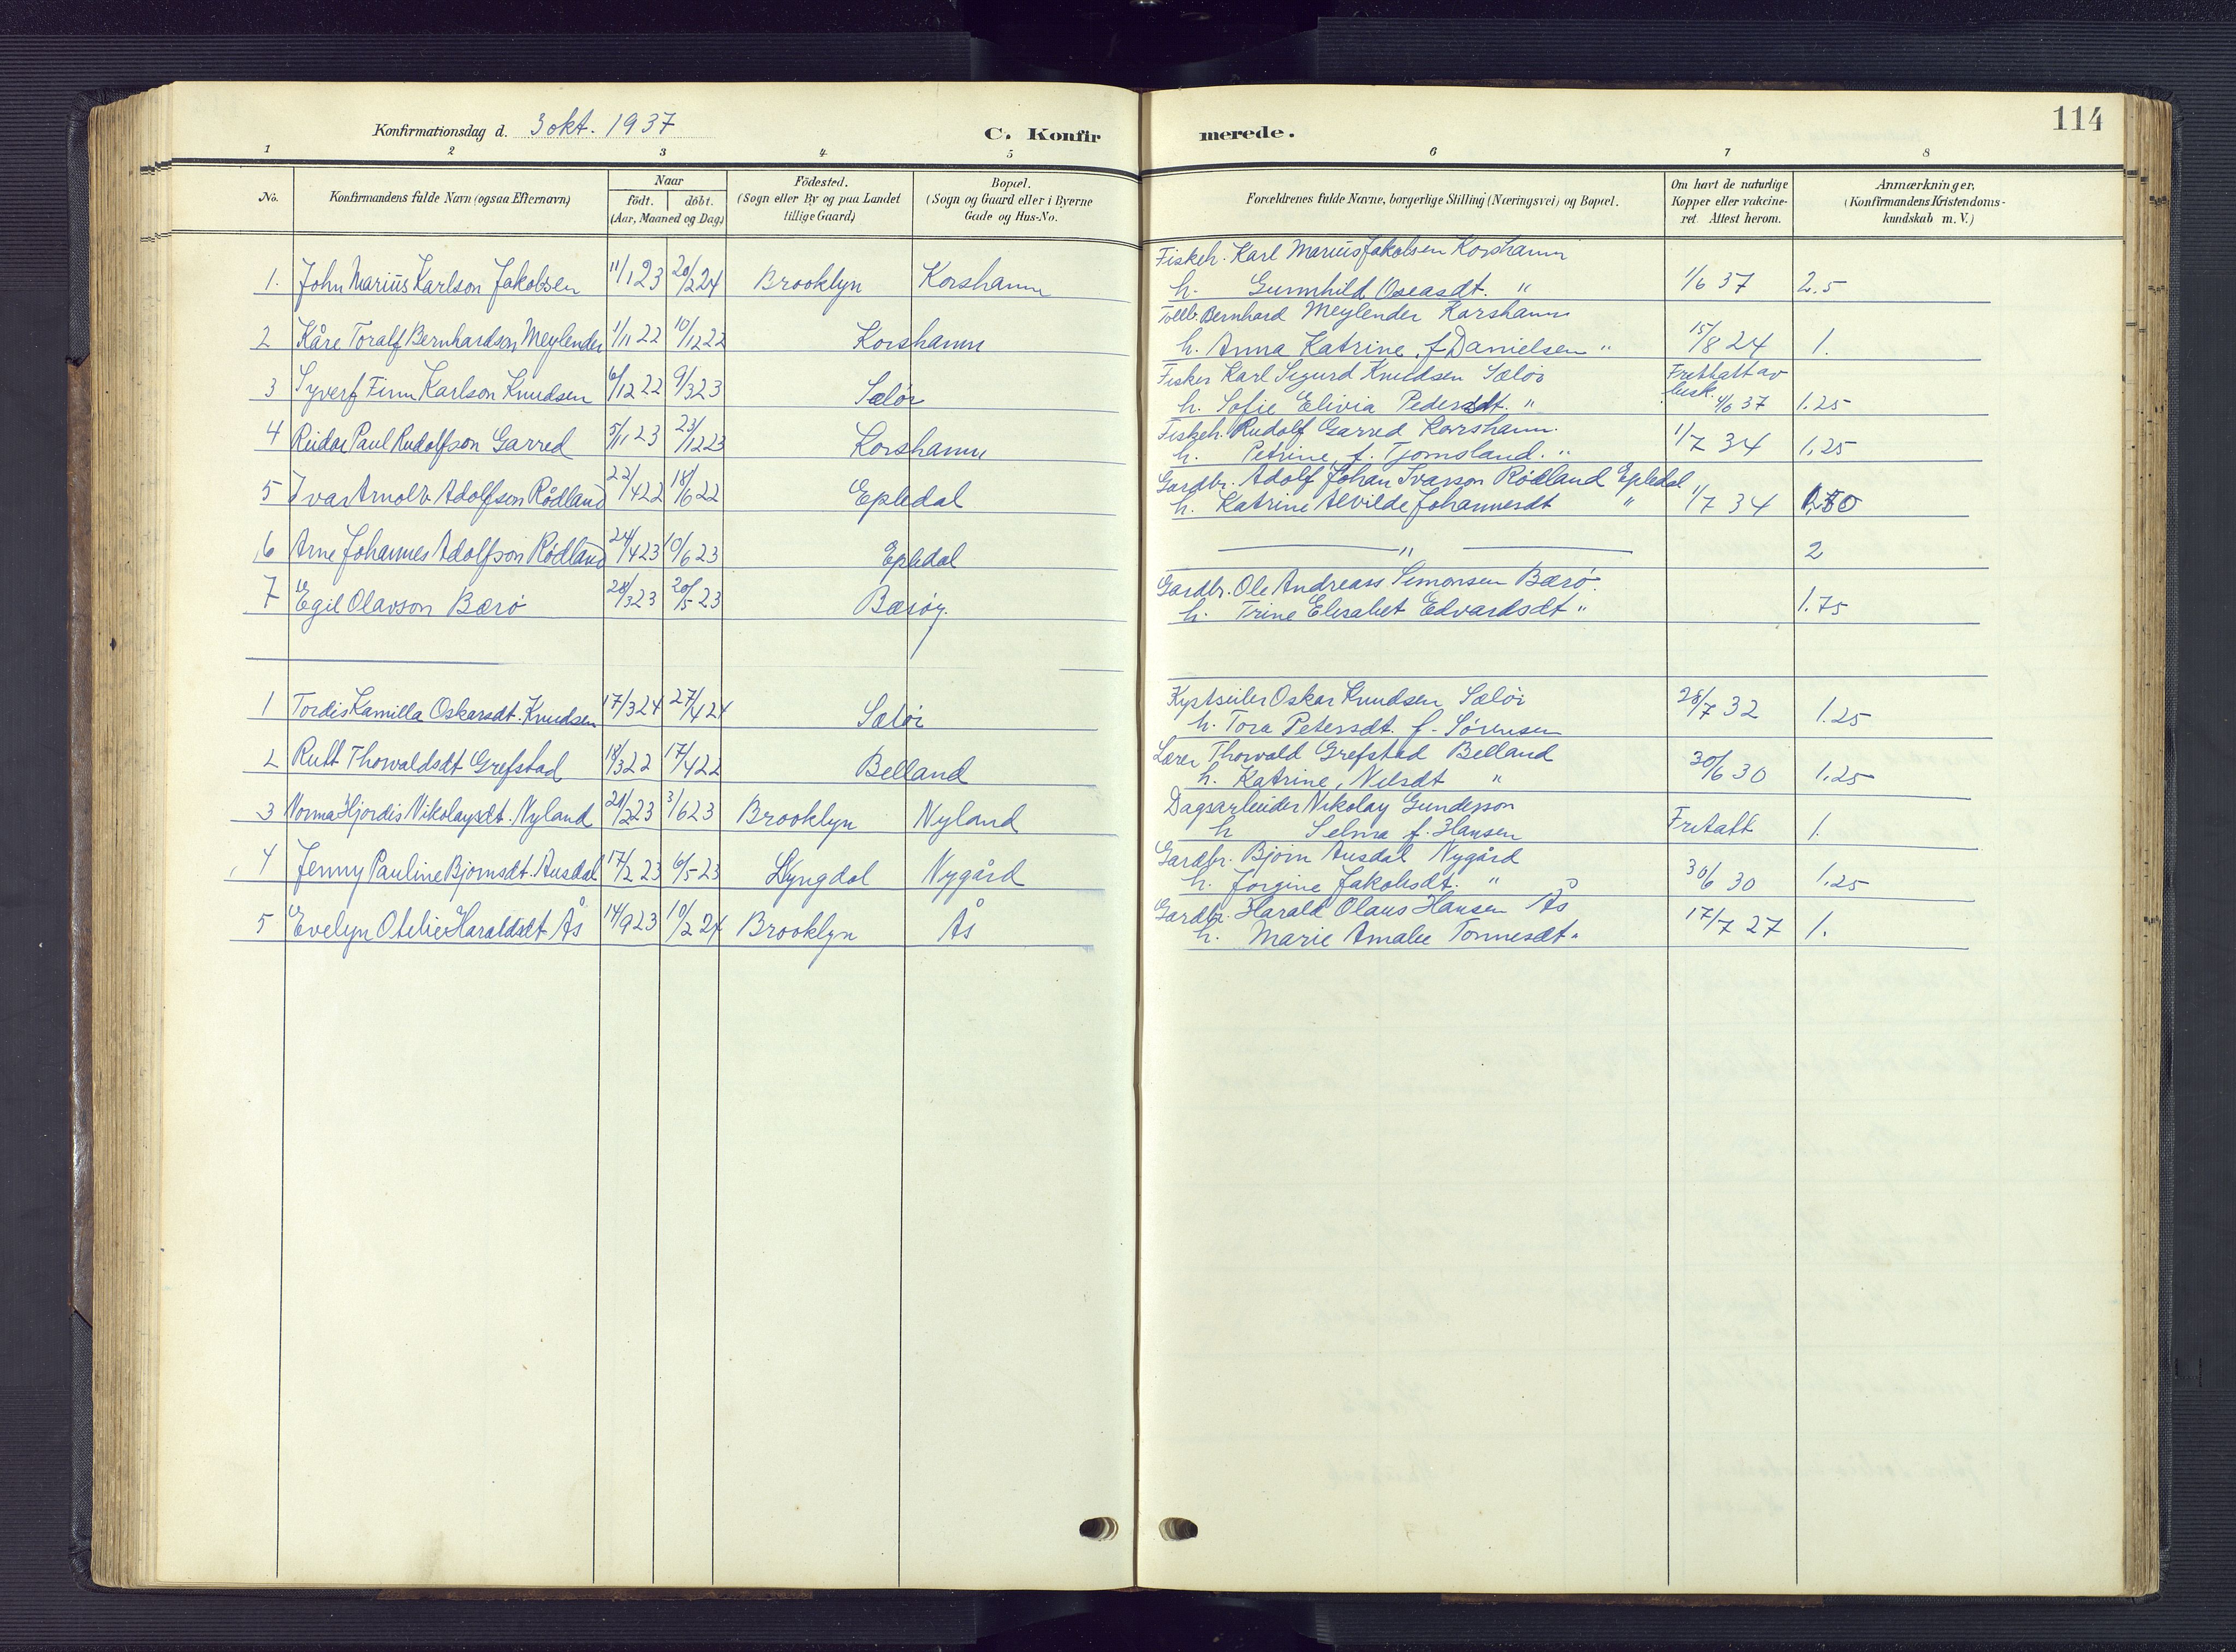 Konfirmationsdag d. 3 okt. 1937
C. Konfirmerede.
114
1 2 3 4 5 6 7 8
No. Konfirmandens fulde Navn (ogsaa Efternavn) Naar födt. döbt. (Aar, Maaned og Dag) Födested. (Sogn eller By og paa Landet tillige Gaard) Bopæl. (Sogn og Gaard eller i Byerne Gade og Hus-No. Forældrenes fulde Navne, borgerlige Stilling (Næringsvei) og Bopæl. Om havt de naturlige Kopper eller vakcineret. Attest herom. Anmærkninger. (Konfirmandens Kristendomskundskab m. V.)
Fiskeh. Karl Marius Jakobsen Korshamn
1. John Marius Karlson Jakobsen 11/1 23 20/2 24 Brooklyn Korshamn h. Gunnhild Oseasdt. " 1/6 37 2.5
Tollb. Bernhard Meylender Korshamn
2 Kåre Toralf Bernhardson Meylender 1/11 22 10/12 22 Korshamn h. Anna Katrine f Danielsen " 15/8 24 1.
Fisker Karl Sigurd Knudsen Selör Frithatt av
3 Syvert Finn Karlson Knudsen 6/12 22 9/3 23 Selör h. Sofie Elivia Pedersdt. " 4/6 37 1.25
Fiskeh. Rudolf Garred Korshamn.
4 Reidar Paul Rudolfson Garred 5/11 23 23/12 23 Korshamn h. Petrine, f. Tjomsland. " 1/7 34 1.25
Gardbr. Adolf Johan Ivarson Rödland Epledal
5 Ivar Arnold Adolfson Rödland 22/4 22 18/6 22 Epledal h. Katrine Alvilde Johannesdt " 1/7 34
6 Arne Johannes Adolfson Rödland 24/4 23 10/6 23 Epledal " 2
Gardbr. Ole Andreass Simonsen Bærö.
7 Egil Olavson Bærö 28/3 23 20/5 23 Bærøy h. Trine Elisabet Edvardsdt " 1.75
Kystseiler Oskar Knudsen Selör
1 Tordis Kamilla Oskarsdt. Knudsen 17/3 24 27/4 24 Selör h. Tora Petersdt. f. Sørensen 28/7 32 1.25
Lærer Thorvald Grefstad Belland
2 Rutt Thorvaldsdt Grefstad 18/3 22 17/4 22 Belland h. Katrine, Nilsdt " 30/6 30 1.25
Dagsarbeider Nikolay Gunderson
3 Norma Hjördis Nikolaysdt. Nyland 21/2 23 3/6 23 Brooklyn Nyland h Selma f. Hansen Fritatt 1.
Gardbr. Björn Ausdal Nygård
4 Jenny Pauline Bjornsdt. Ausdal 17/2 23 6/5 23 Lyngdal Nygård h. Jorgine Jakobsdt. " 30/6 30 1.25
Gardbr. Harald Olaus Hansen Ås
5 Evelyn Otilie Haraldsdt Ås 14/9 23 10/2 24 Brooklyn Ås h. Marie Amalie Tonnesdt " 17/7 27 1.